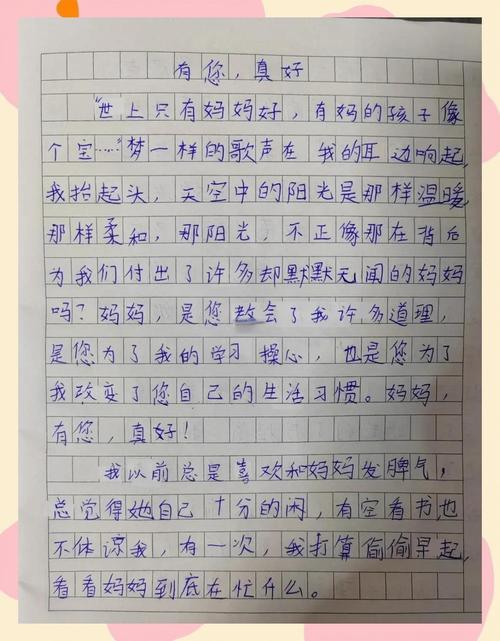 有您，真好
“世上只有妈妈好，有妈的孩子像
个宝……”梦一样的歌声在我的耳边响起，
我抬起头，天空中的阳光是那样温暖，
那样柔和，那阳光，不正像那在背后
为我们付出了许多却默默无闻的妈妈
吗？妈妈，是您教会了我许多道理，
是您为了我的学习操心，也是您为了
我改变了您自己的生活习惯。妈妈，
有您，真好！
我以前总是喜欢和妈妈发脾气，
总觉得她自己十分的闲，有空看书也
不体谅我，有一次，我打算偷偷早起，
看看妈妈到底在忙什么。